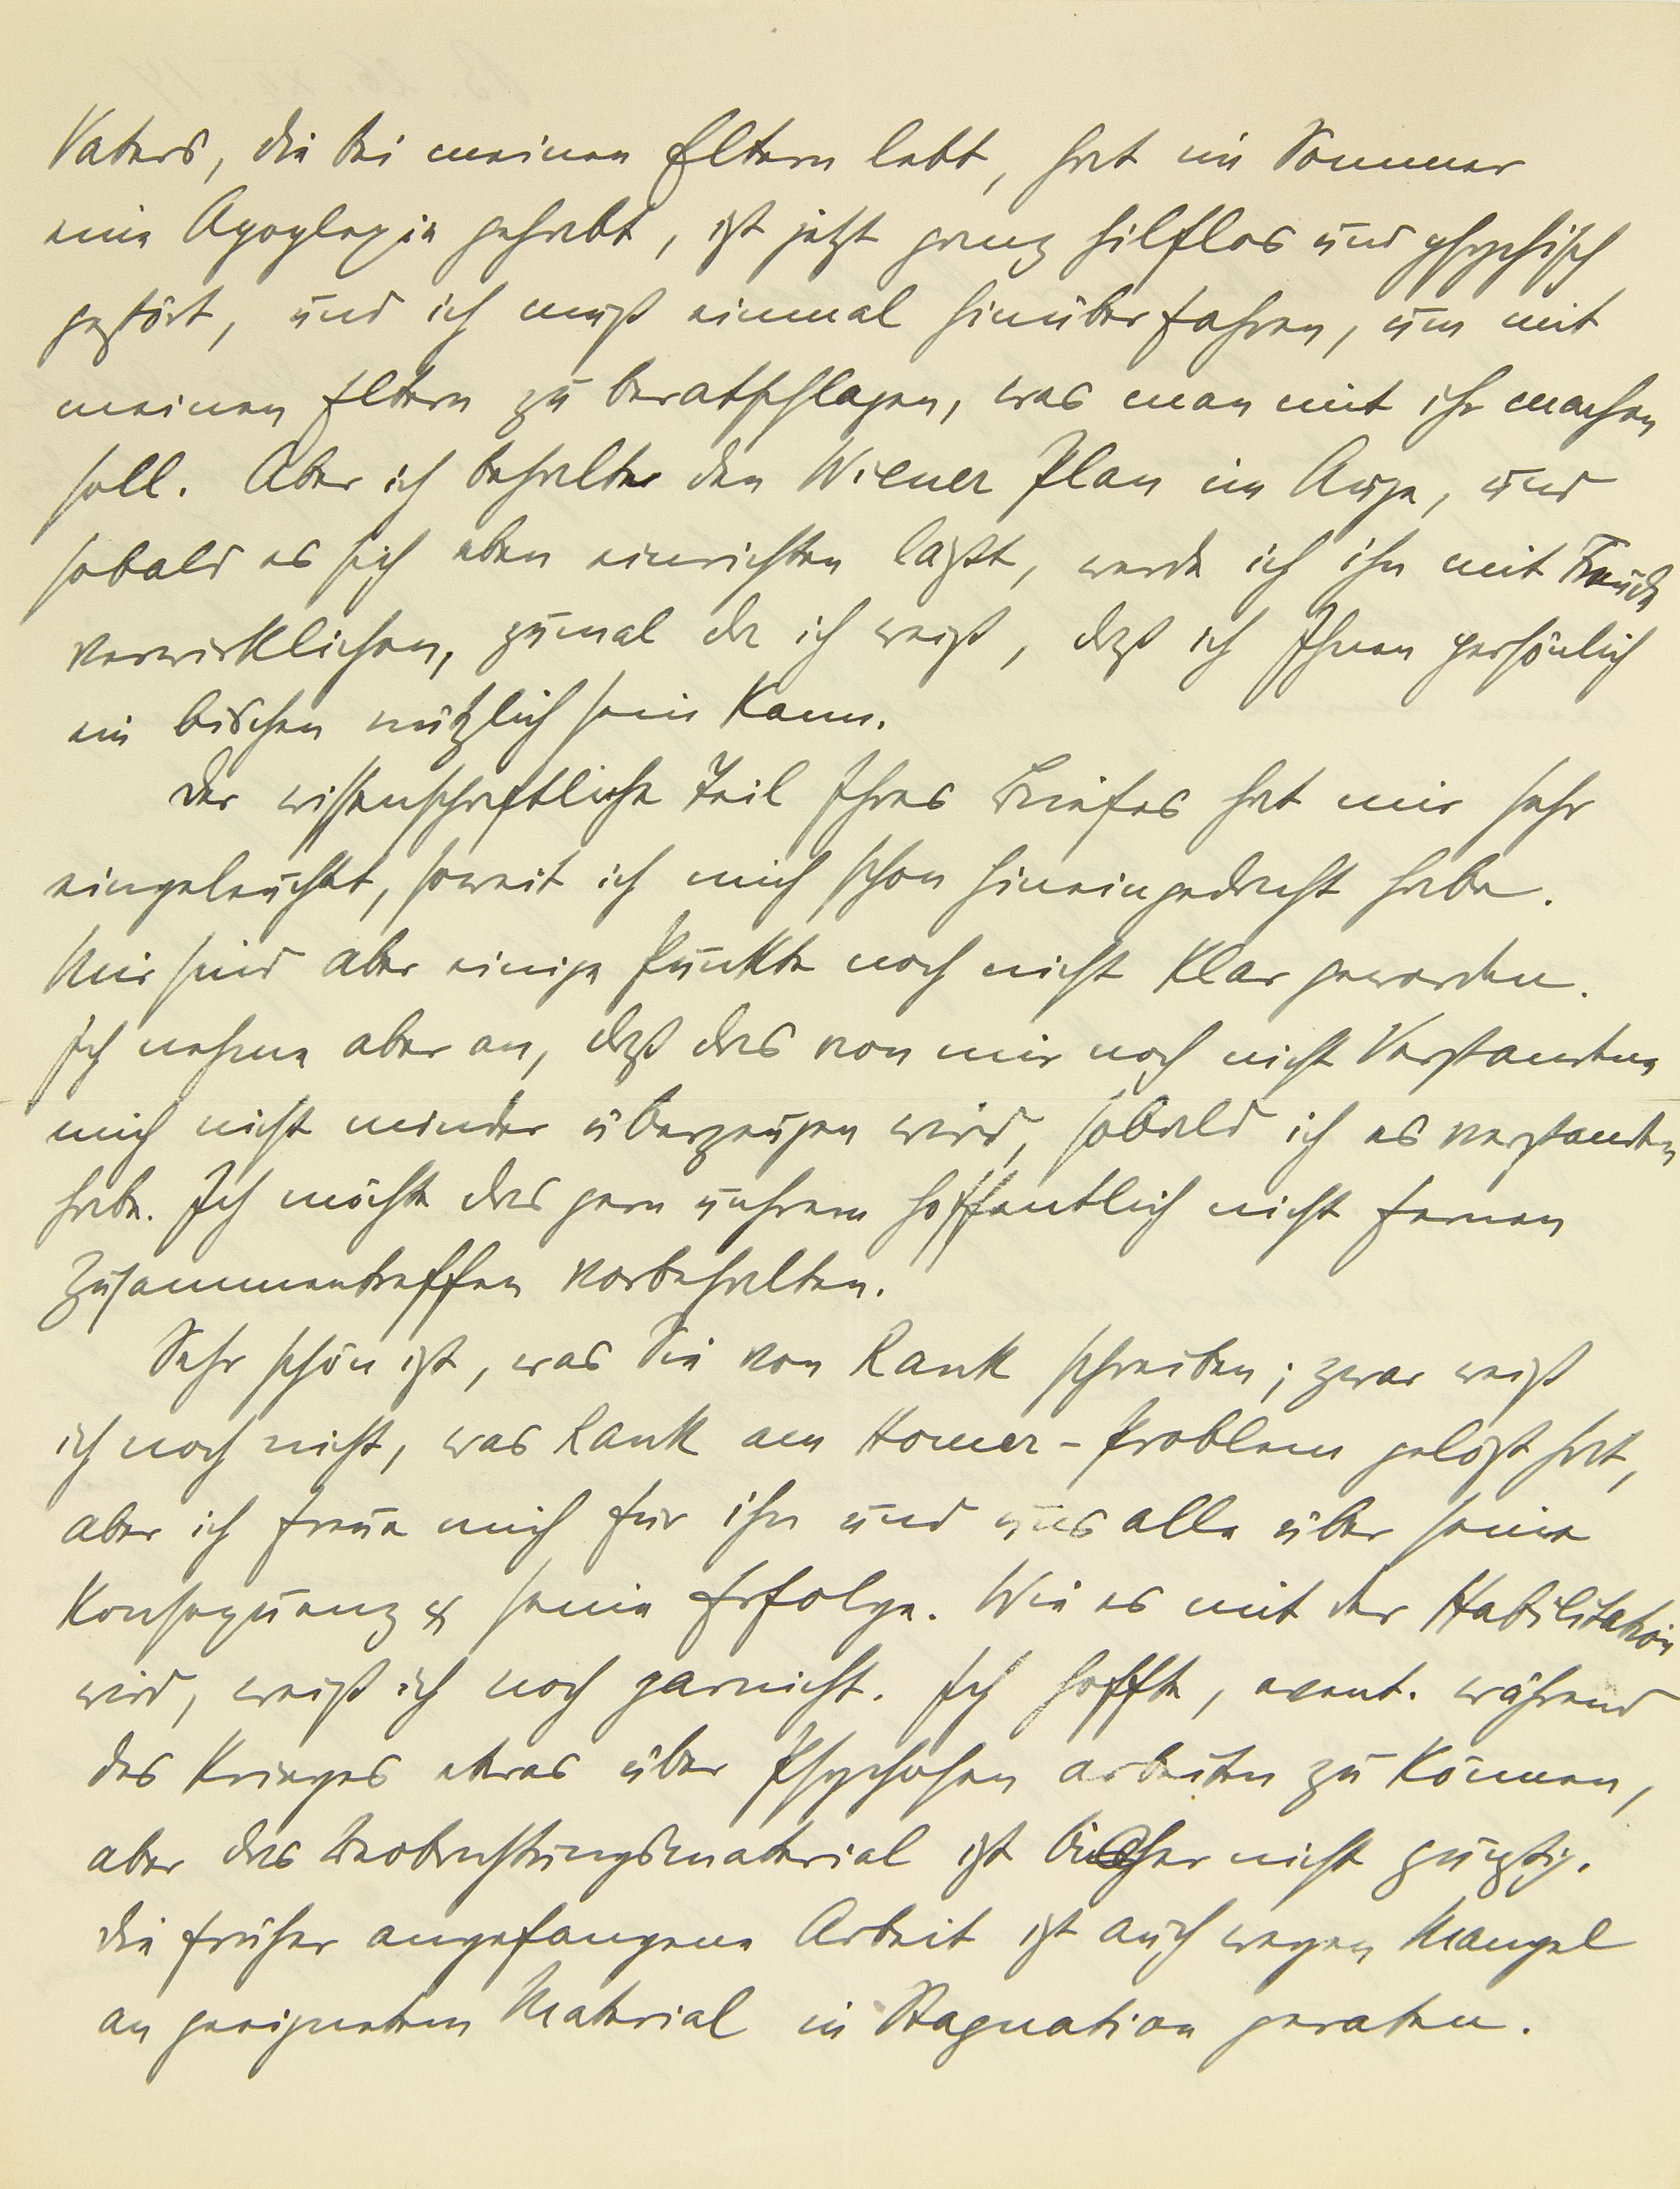 Vaters, die bei meinen Eltern lebt, hat im Sommer
eine Apoplexie gehabt, ist jetzt ganz hilflos und psychisch
gestört, und ich muß einmal hinüberfahren, um mit
meinen Eltern zu beratschlagen, was man mit ihr machen
soll. Aber ich behalte den Wiener Plan im Auge, und
sobald es sich eben einrichten läßt, werde ich ihn mit Freude
verwirklichen, zumal da ich weiß, daß ich Ihnen persönlich
ein bischen nützlich sein kann.
Der wissenschaftliche Teil Ihres Briefes hat mir sehr
eingeleuchtet, soweit ich mich schon hineingedacht habe.
Mir sind aber einige Punkte noch nicht klar geworden.
Ich nehme aber an, daß das von mir noch nicht Verstandene
mich nicht minder überzeugen wird, sobald ich es verstanden
habe. Ich möchte das gern unserem hoffentlich nicht fernen
Zusammentreffen vorbehalten.
Sehr schön ist, was Sie von Rank schreiben; zwar weiß
ich noch nicht, was Rank am Homer-Problem gelöst hat,
aber ich freue mich für ihn und uns alle über seine
Konsequenz & seine Erfolge. Wie es mit der Habilitation
wird, weiß ich noch garnicht. Ich hoffte, event. während
des Krieges etwas über Psychosen arbeiten zu können,
aber das Beobachtungsmaterial ist bisher nicht günstig.
Die früher angefangene Arbeit ist auch wegen Mangel
an geeignetem Material in Stagnation geraten.